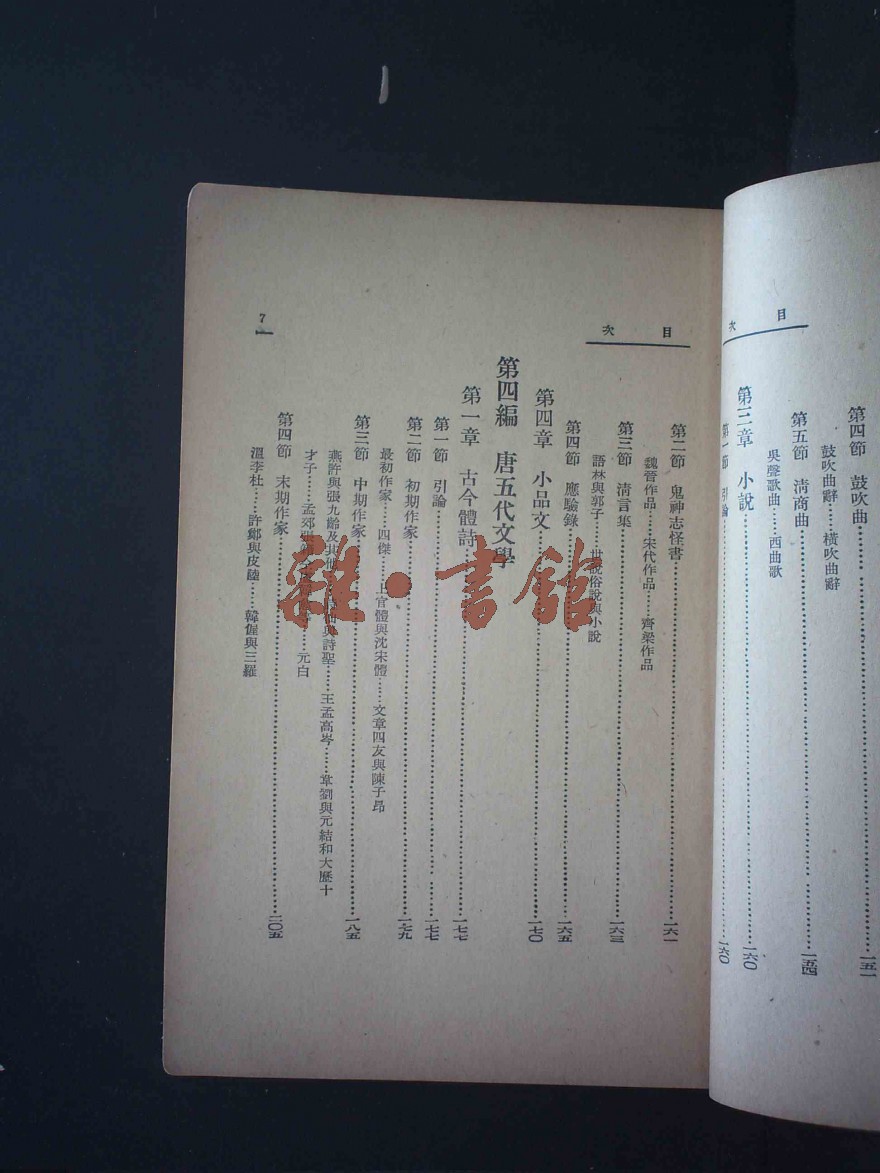 目 次
第四節 鼓吹曲……一五一
鼓吹曲辭……橫吹曲辭
第五節 清商曲……一五四
吳聲歌曲……西曲歌
第三章 小說……一六〇
第一節 引論……一六〇
目 次
第二節 鬼神志怪書……一六一
魏晉作品……宋代作品……齊梁作品
第三節 清言集……一六三
語林與郭子……世說俗說與小說
第四節 應驗錄……一六五
第四章 小品文……一七〇
第四編 唐五代文學
第一章 古今體詩……一七七
第一節 引論……一七七
第二節 初期作家……一七九
最初作家……四傑……上官體與沈宋體……文章四友與陳子昂
第三節 中期作家……一八五
燕許與張九齡及其他……與詩聖……王孟高岑……韋劉與元結和大歷十
才子……孟郊張……元白
第四節 末期作家……二〇五
溫李杜……許鄭與皮陸……韓偓與三羅
7
雜·書館